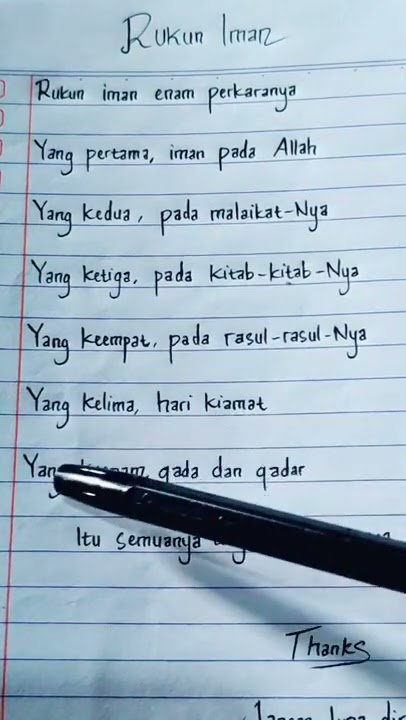 Rukun Iman
Rukun iman enam perkaranya
Yang pertama, iman pada Allah
Yang kedua, pada malaikat-Nya
Yang ketiga, pada kitab-kitab-Nya
Yang keempat, pada rasul-rasul-Nya
Yang kelima, hari kiamat
Yang qada dan qadar
Itu semuanya
Thanks